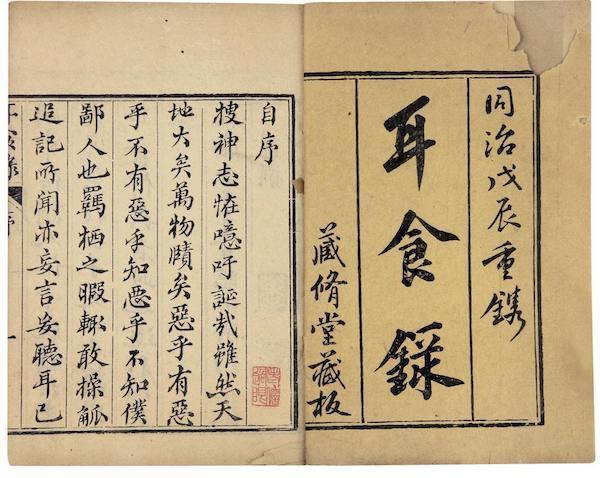 同治戊辰重鐫
耳食錄
藏脩堂藏板
自序
搜神志恠噫吁誕哉雖然天
地大矣萬物賾矣惡乎有惡
乎不有惡乎知惡乎不知僕
鄙人也羈栖之暇輙敢操觚
追記所聞亦妄言妄聽耳已
耳食錄
序
一